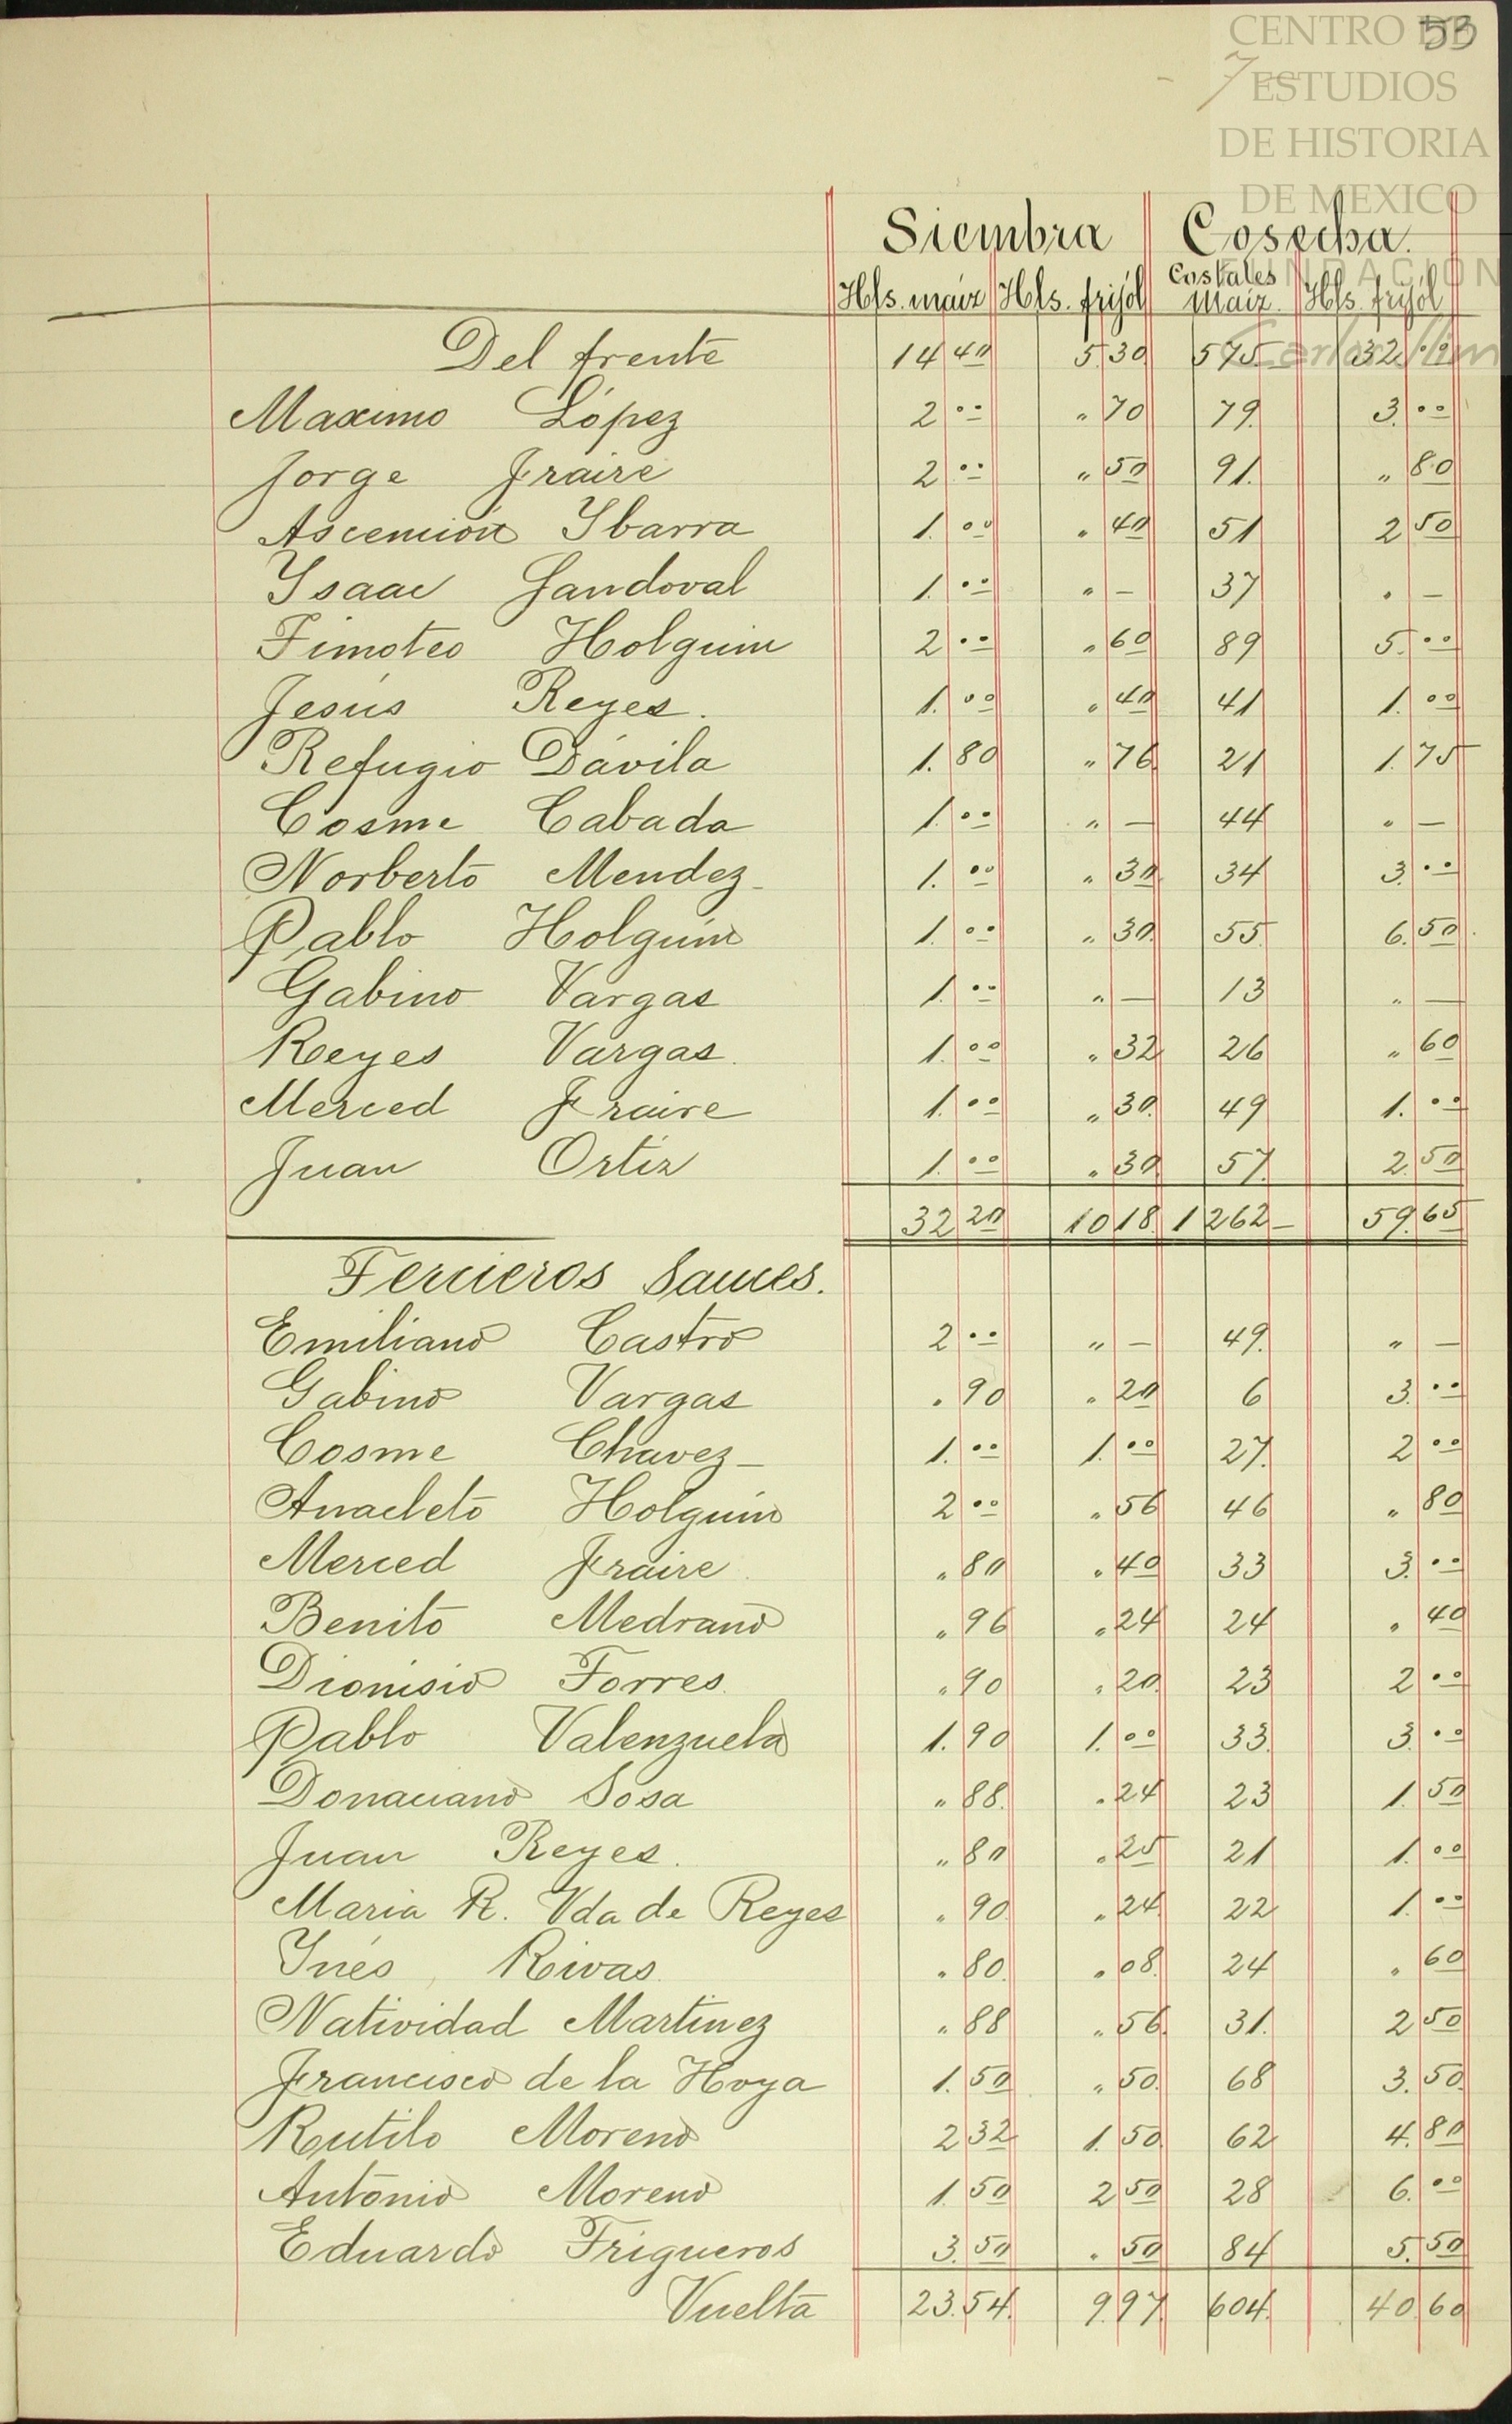 CENTRO DE
53
7
ESTUDIOS
DE HISTORIA
DE MEXICO
FUNDACION
Carlos Slim
Siembra Cosecha.
Hls. maíz Hls. frijól Costales maíz. Hls. frijól
Del frente 14 40 5.30 575. 32.00
Maximo López 2 00 " 70 79. 3.00
Jorge Fraire 2 00 " 50 91. " 80
Ascención Ybarra 1.00 " 40 51 2 50
Ysaac Sandoval 1.00 " — 37 " —
Timoteo Holguin 2 00 " 60 89 5.00
Jesús Reyes. 1.00 " 40 41 1.00
Refugio Dávila 1.80 " 76. 21 1.75
Cosme Cabada 1.00 " — 44 " —
Norberto Mendez 1.00 " 30 34 3.00
Pablo Holguín 1.00 " 30. 55. 6.50
Gabino Vargas 1.00 " — 13 " —
Reyes Vargas. 1.00 " 32 26 " 60
Merced Fraire 1.00 " 30. 49 1.00
Juan Ortiz 1.00 " 30. 57. 2.50
32 20 10 18. 1 262— 59.65
Tercieros Sauces.
Emiliano Castro 2 00 " — 49. " —
Gabino Vargas " 90 " 20 6 3.00
Cosme Chavez 1.00 1.00 27. 2 00
Anacleto Holguín 2 00 " 56 46 " 80
Merced Fraire. " 80 " 40 33 3.00
Benito Medrano " 96 " 24 24 " 40
Dionisio Torres. " 90 " 20. 23 2 00
Pablo Valenzuela 1.90 1.00 33. 3.00
Donaciano Sosa " 88. " 24 23 1.50
Juan Reyes. " 80 " 25 21 1.00
Maria R. Vda de Reyes " 90. " 24. 22 1.00
Ynés Rivas. " 80. " 08. 24 " 60
Natividad Martinez " 88 " 56. 31. 2 50
Francisco de la Hoya 1.50 " 50. 68 3.50.
Rutilo Moreno 2 32 1.50. 62 4.80
Antonio Moreno 1.50 2 50 28 6.00
Eduardo Trigueros 3.50 " 50 84 5.50
Vuelta 23.54. 9.97. 604. 40.60